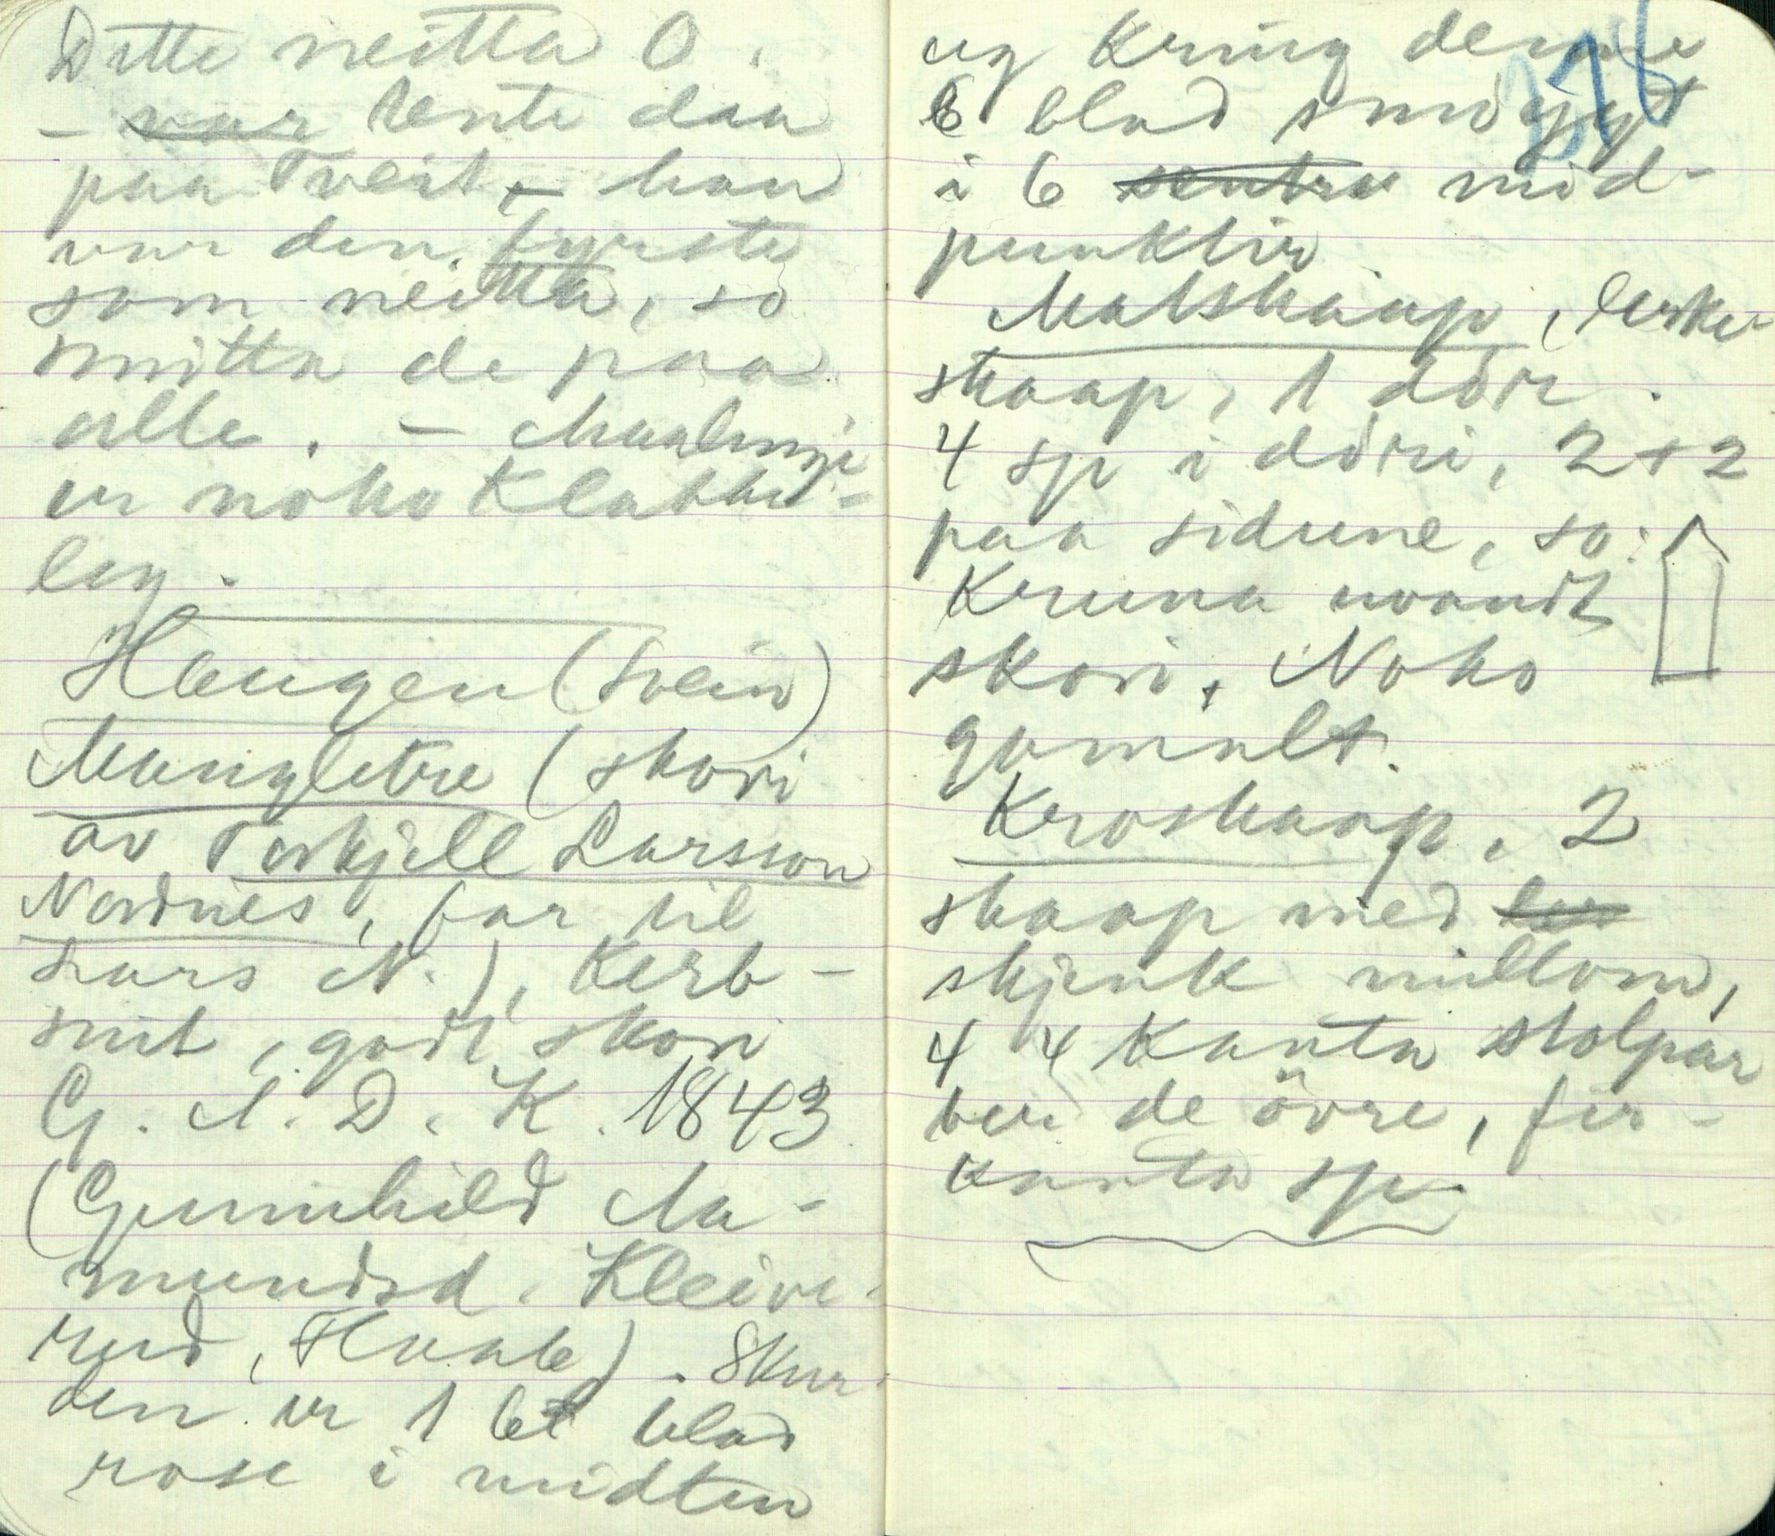 Dette neitta O.
- var tente daa
paa Tveit, - han
var den fyrste
som neitta, so
smitta de paa
alle. - Maalingi
er noko klabbe-
leg.
Haugen (Svein)
Mangletre (skori
av Torkjell Larsson
Nordnes, far til
Lars N.), Kerb-
snit, godt skori
G. A. D. K. 1843
(Gunnhild Aa-
mundsd. Kleive-
rud, Flaabr). Skur
den er 1 6 blad
rose i midten
og kring denne
6 blad smöygt
i 6 sentra mid-
punktir
Matskaap, Lerke-
skaap, 1 dör.
4 sp i döri, 2+2
paa sidune, so:
Kruna uvandt
skori. Noko
gamalt.
Kroskaap, 2
skaap med
skjenk millom,
4 4 kanta stolpar
ber de övre, fir-
kanta sp.
278